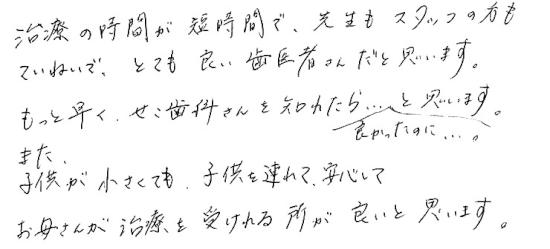 治療の時間が短時間で、先生もスタッフの方も
ていねいで、とても良い歯医者さんだと思います。
もっと早く、せこ歯科さんを知れたら....と思います。
良かったのに...。
また、
子供が小さくても、子供を連れて、安心して
お母さんが治療を受けれる所が良いと思います。